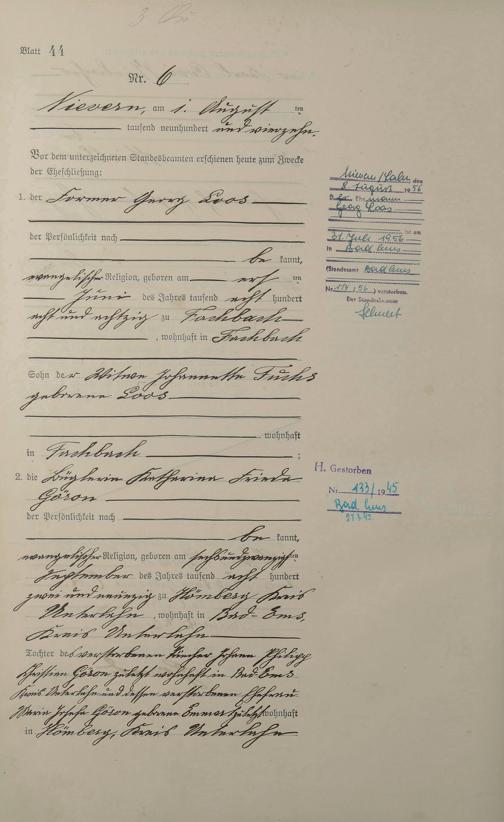 Blatt 44
Nr. 6
Nievern, am 1. August ten
tausend neunhundert und vierzehn.
Vor dem unterzeichneten Standesbeamten erschienen heute zum Zwecke
der Eheschließung:
1. der Former Georg Loos
der Persönlichkeit nach
be kannt,
evangelischer Religion, geboren am ersten
Juni des Jahres tausend acht hundert
acht und achtzig zu Fachbach
, wohnhaft in Fachbach
Sohn der Witwe Johannette Fuchs
geborene Loos
wohnhaft
in Fachbach ;
2. die Büglerin Katharina Frieda
Göson
der Persönlichkeit nach
be kannt,
evangelischer Religion, geboren am sechsundzwanzigsten
September des Jahres tausend acht hundert
zwei und neunzig zu Hömberg Kreis
Unterlahn, wohnhaft in Bad-Ems,
Kreis Unterlahn
Tochter des verstorbenen Johann Philipp
Christian Göson zuletzt wohnhaft in Bad Ems
Kreis Unterlahn und dessen verstorbenen Ehefrau
Maria Josefa Göson geborene zuletzt wohnhaft
in Hömberg, Kreis Unterlahn
Nievern/Lahn den
8. August 1956
D Ehemann
Georg Loos
ist am
31. Juli 1956
in Bad Ems
(Standesamt Bad Ems
Nr. 114/56) verstorben.
Der Standesbeamte
H. Gestorben
Nr. 133/1945
Bad Ems